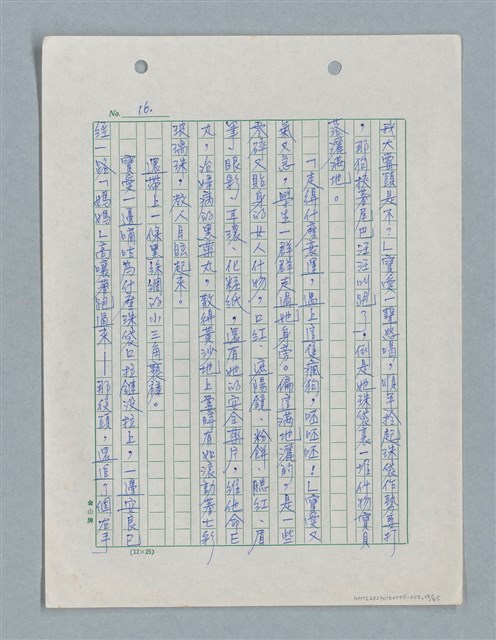 No. 16.
我大要頭是不？」寶愛一聲怒喝，順手拾起珠袋作勢要打
，那狗挾著尾巴汪汪叫跑了。倒是她珠袋裏一堆什物寶貝
落灑滿地。
「走得什麼衰運，遇上這隻瘋狗，呸呸呸！」寶愛又
氣又急，學生一群群走過她身旁。偏這滿地灑的，是一些
零碎又貼身的女人什物，口紅、遮陽鏡、粉餅、腮紅、眉
筆、眼影、耳環、化粧紙，還有她的安全藥片，維他命E
丸，治婦病的黑藥丸，散綴黃沙地上霎時有如滾動著七彩
玻璃珠，教人目眩起來。
還帶上一條黑絲綢的小三角褻褲。
寶愛一邊嘀咕為什麼珠袋口拉鏈沒拉上，一邊安良已
經一路「媽媽」高嚷著跑過來——那後頭，還追個右手
金山牌
(12×25)